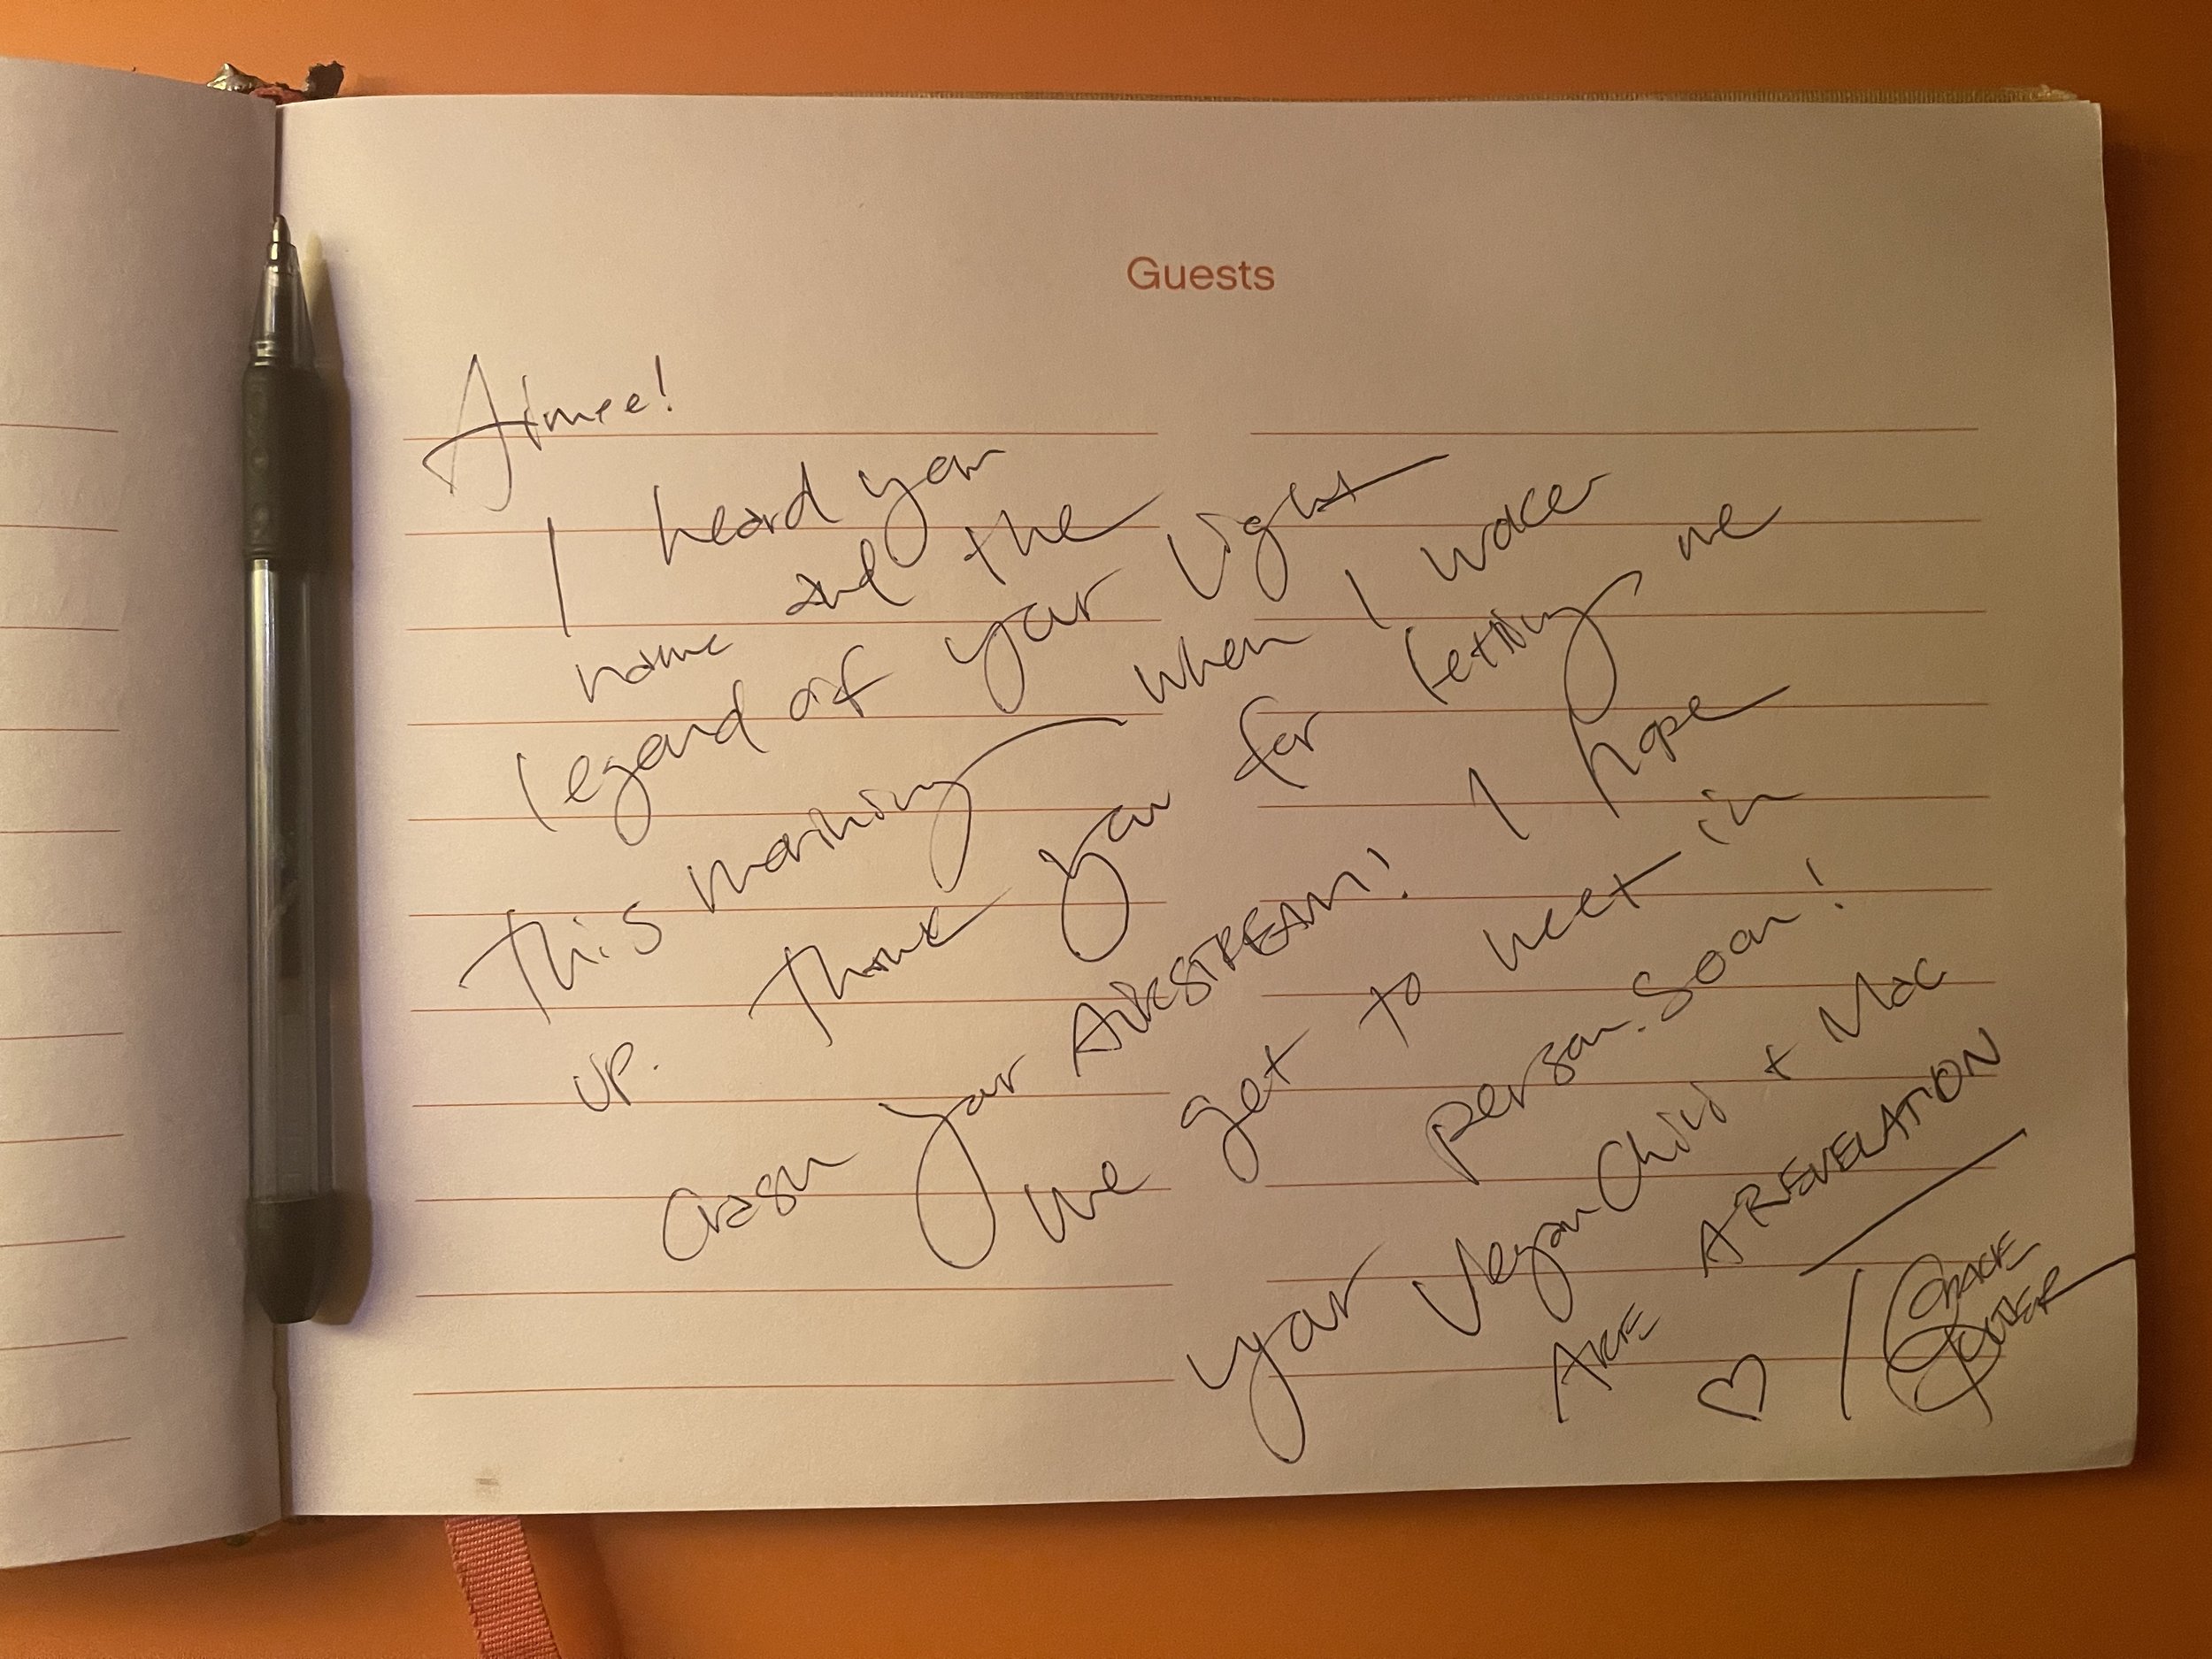 Guests
Aimee!
I heard your
name and the
legend of your light
this morning when I woke
up. Thank you for letting me
crash your AIRSTREAM! I hope
we get to meet in
person. Soon!
Your Vegan Chili + Mac
ARE A REVELATION
♡ / GRACE
POTTER